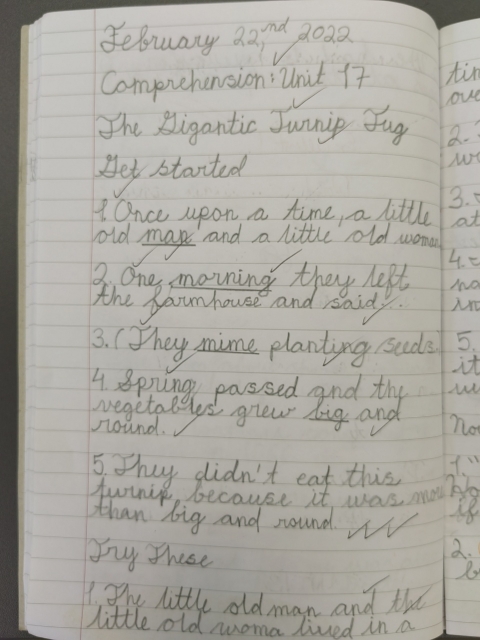 February 22,nd 2022
Comprehension: Unit 17
The Gigantic Turnip Tug
Get started
1. Once upon a time, a little
old man and a little old woman
2. One morning they left
the farmhouse and said:
3. (They mime planting seeds)
4. Spring passed and the
vegetables grew big and
round.
5. They didn't eat this
turnip, because it was more
than big and round.
Try These
1. The little old man and the
little old woma lived in a
tim
ove
2.
3.
at
4.
na
in
5.
it
No
1."
if
2.
b